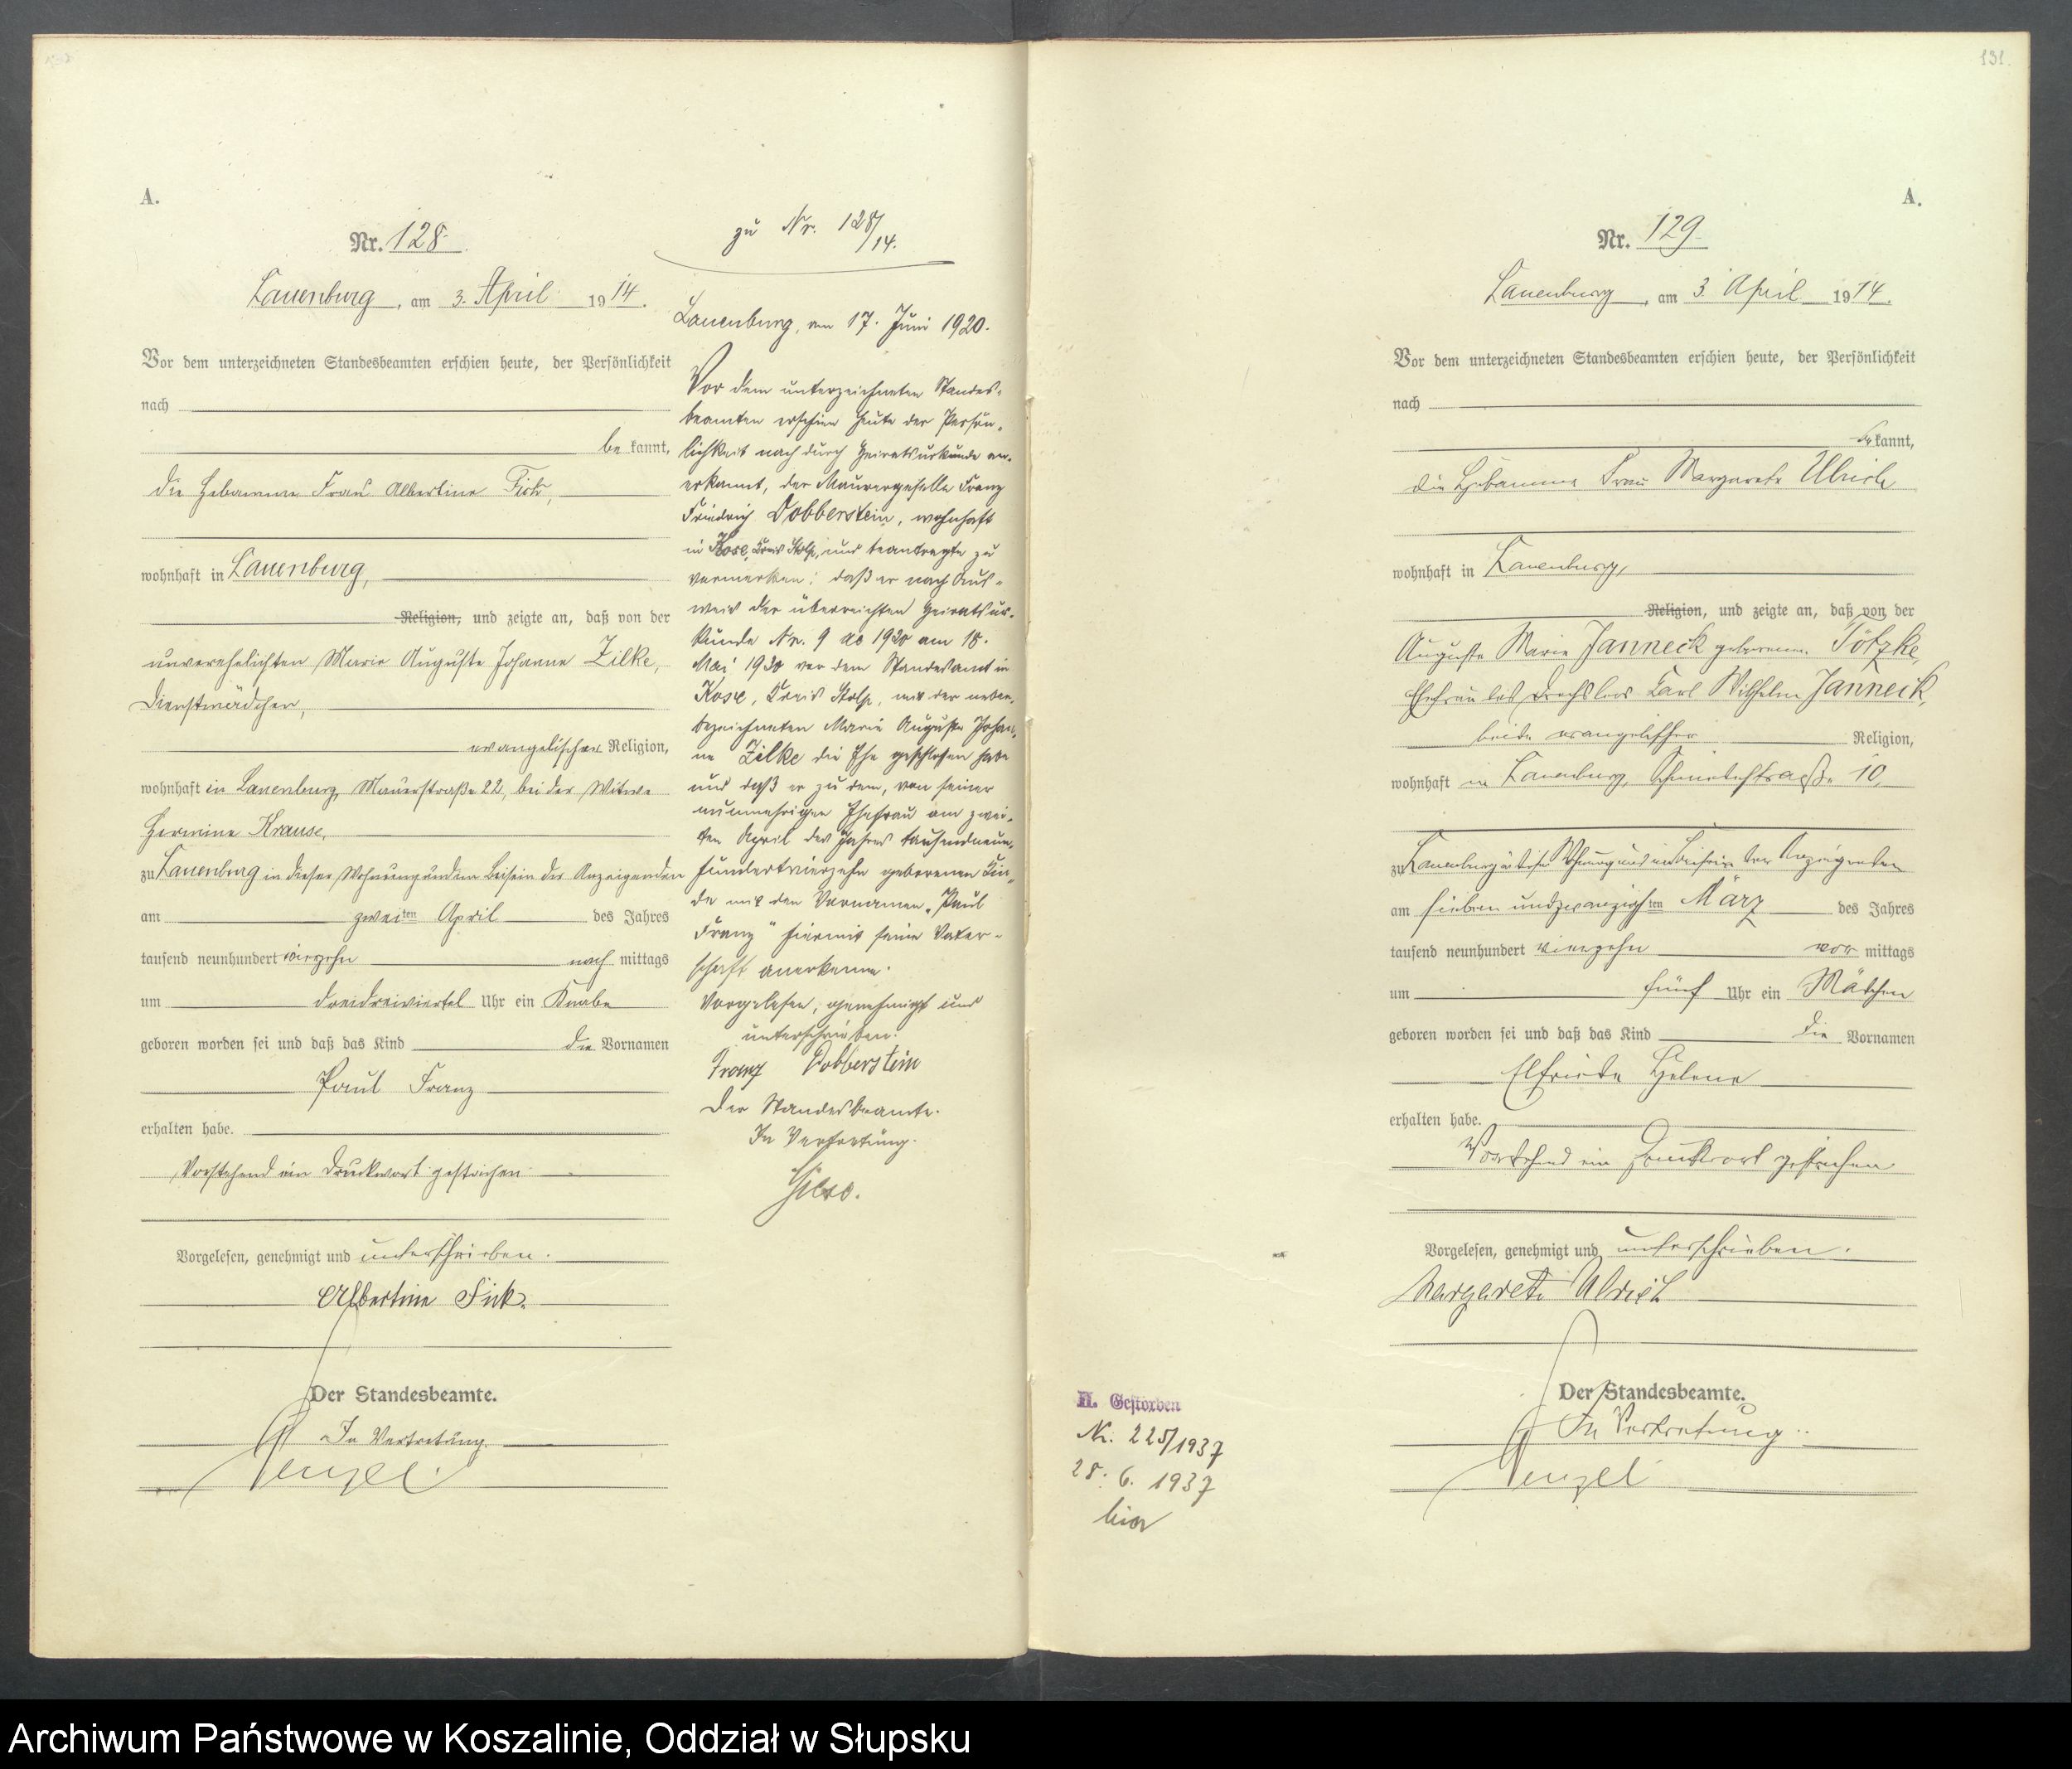 A.
Nr. 128.
Lauenburg, am 3. April 1914.
Vor dem unterzeichneten Standesbeamten erschien heute, der Persönlichkeit
nach
be kannt,
die Hebamme Frau Albertine Fick,
wohnhaft in Lauenburg,
Religion, und zeigte an, daß von der
unverehelichten Marie Auguste Johanne Zilke,
Dienstmädchen,
evangelischer Religion,
wohnhaft in Lauenburg, Mauerstraße 22, bei der Witwe
Hermine Krause,
zu Lauenburg in dieser Wohnung und im Beisein der Anzeigenden
am zweiten April des Jahres
tausend neunhundert vierzehn nach mittags
um dreidreiviertel Uhr ein Knabe
geboren worden sei und daß das Kind die Vornamen
Paul Franz
erhalten habe.
Vorstehend ein Druckwort gestrichen
Vorgelesen, genehmigt und unterschrieben.
Albertine Fick.
Der Standesbeamte.
In Vertretung.
Wenzel
zu Nr. 128/14.
Lauenburg, am 17. Juni 1920.
Vor dem unterzeichneten Standes-
beamten erschien heute der Persön-
lichkeit nach durch Heiratsurkunde an-
erkannt, der Maurergeselle Franz
Friedrich Dobberstein, wohnhaft
in Kose, Kreis Stolp, und beantragte zu
vermerken: daß er nach Aus-
weis der überreichten Heiratsur-
kunde Nr. 9 de 1920 am 18.
Mai 1920 vor dem Standesamt in
Kose, Kreis Stolp, mit der neben-
bezeichneten Marie Auguste Johan-
ne Zilke die Ehe geschlossen habe
und daß er zu dem, von seiner
nunmehrigen Ehefrau am zwei-
ten April des Jahres tausendneun-
hundertvierzehn geborenen Kin-
de mit den Vornamen „Paul
Franz" hiermit seine Vater-
schaft anerkenne.
Vorgelesen, genehmigt und
unterschrieben.
Franz Dobberstein
Der Standesbeamte.
In Vertretung.
131.
A.
Nr. 129.
Lauenburg, am 3. April 1914.
Vor dem unterzeichneten Standesbeamten erschien heute, der Persönlichkeit
nach
be kannt,
die Hebamme Frau Margarete Ulrich
wohnhaft in Lauenburg,
Religion, und zeigte an, daß von der
Auguste Marie Janneck geborenen Tötzke,
Ehefrau des Drechslers Carl Wilhelm Janneck,
beide evangelischer Religion,
wohnhaft in Lauenburg, Schmiedestraße 10,
zu Lauenburg in dieser Wohnung und im Beisein der Anzeigenden
am sieben undzwanzigsten März des Jahres
tausend neunhundert vierzehn vor mittags
um fünf Uhr ein Mädchen
geboren worden sei und daß das Kind die Vornamen
Elfriede Helene
erhalten habe.
Vorstehend ein Druckwort gestrichen
Vorgelesen, genehmigt und unterschrieben.
Margarete Ulrich
Der Standesbeamte.
In Vertretung.
Wenzel
H. Gestorben
Nr. 225/1937
28. 6. 1937
hier
Archiwum Państwowe w Koszalinie, Oddział w Słupsku